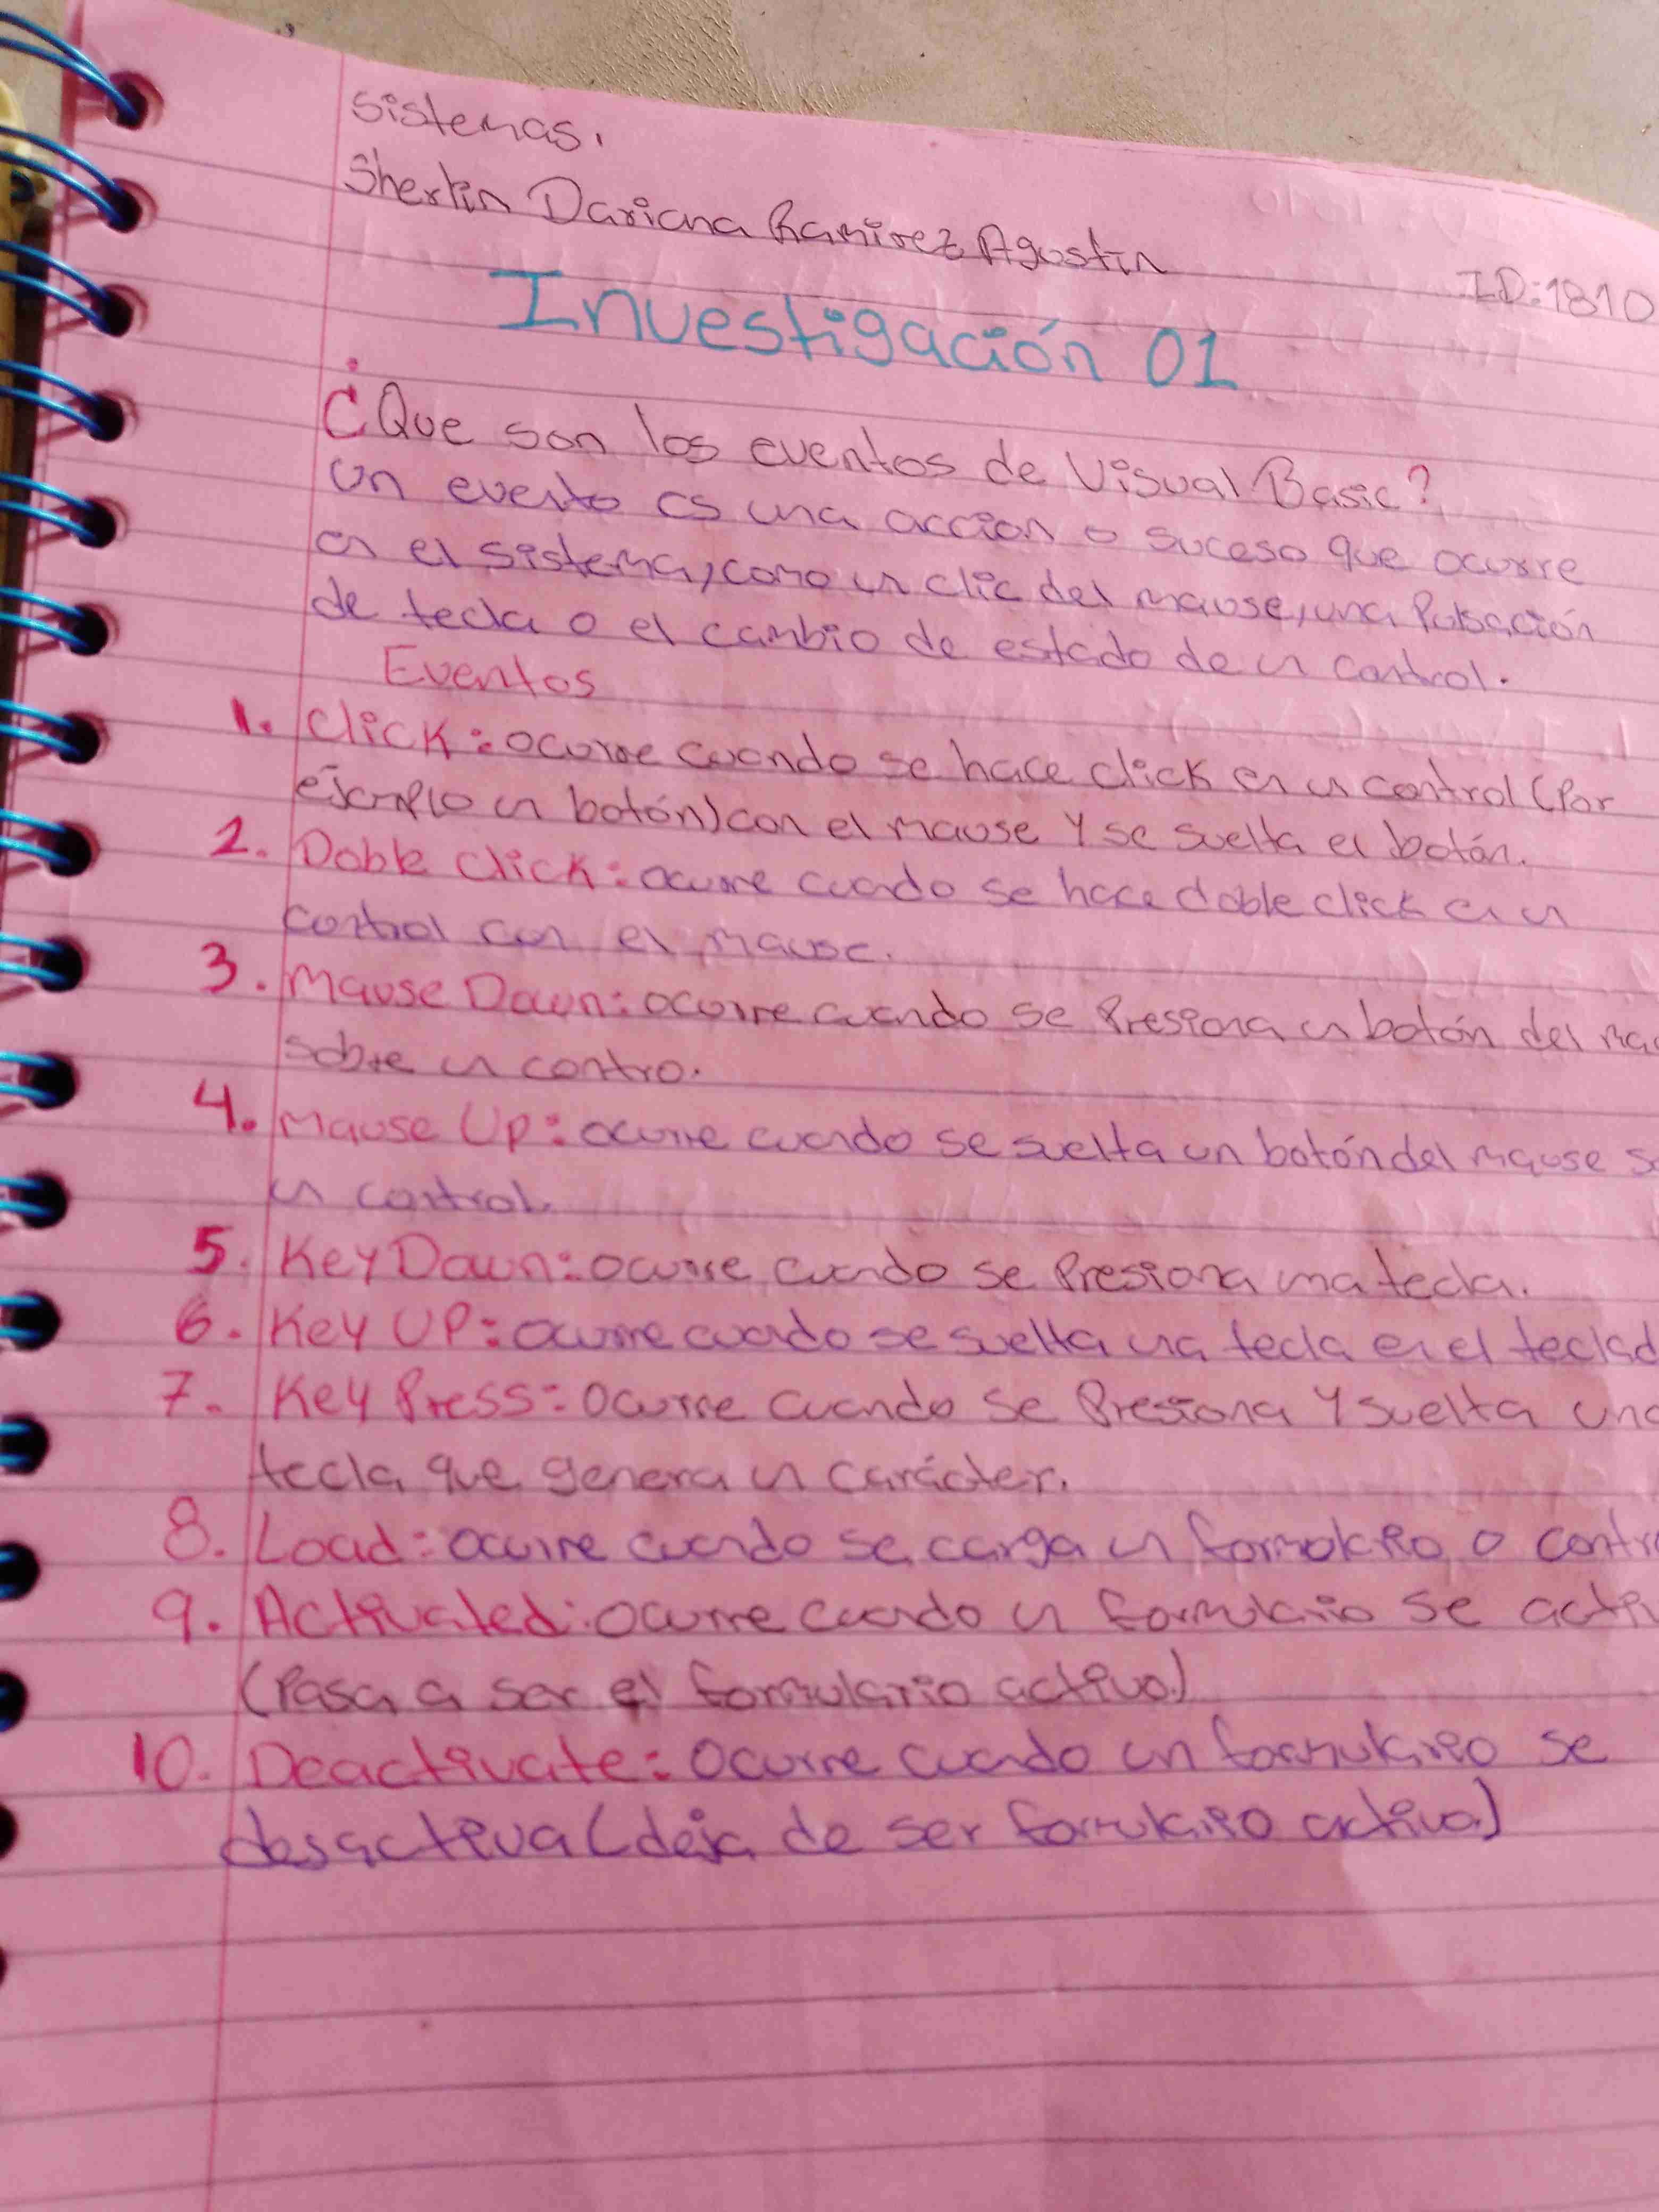 Sistemas.
Sherlin Dariana Ramirez Agustin
ID:1810
Investigación 01
¿Que son los eventos de Visual Basic?
Un evento es una accion o suceso que ocurre
en el sistema, como un clic del mause, una Pulsación
de tecla o el cambio de estado de un control.
Eventos
1. Click: ocurre cuando se hace click en un control (Por
ejemplo un botón) con el mause y se suelta el botón.
2. Doble Click: ocurre cuando se hace doble click en un
control con el mause.
3. Mause Down: ocurre cuando se Presiona un botón del ma
sobre un contro.
4. Mause Up: ocurre cuando se suelta un botón del mause s
un control.
5. Key Down: ocurre cuando se Presiona una tecla.
6. Key UP: ocurre cuando se suelta una tecla en el teclad
7. Key Press: ocurre cuando se Presiona y suelta una
tecla que genera un carácter.
8. Load: ocurre cuando se carga un formulario o contr
9. Activated: ocurre cuando un formulario se acti
(Pasa a ser el formulario activo.)
10. Deactivate: ocurre cuando un formulario se
desactiva (deja de ser formulario activo.)